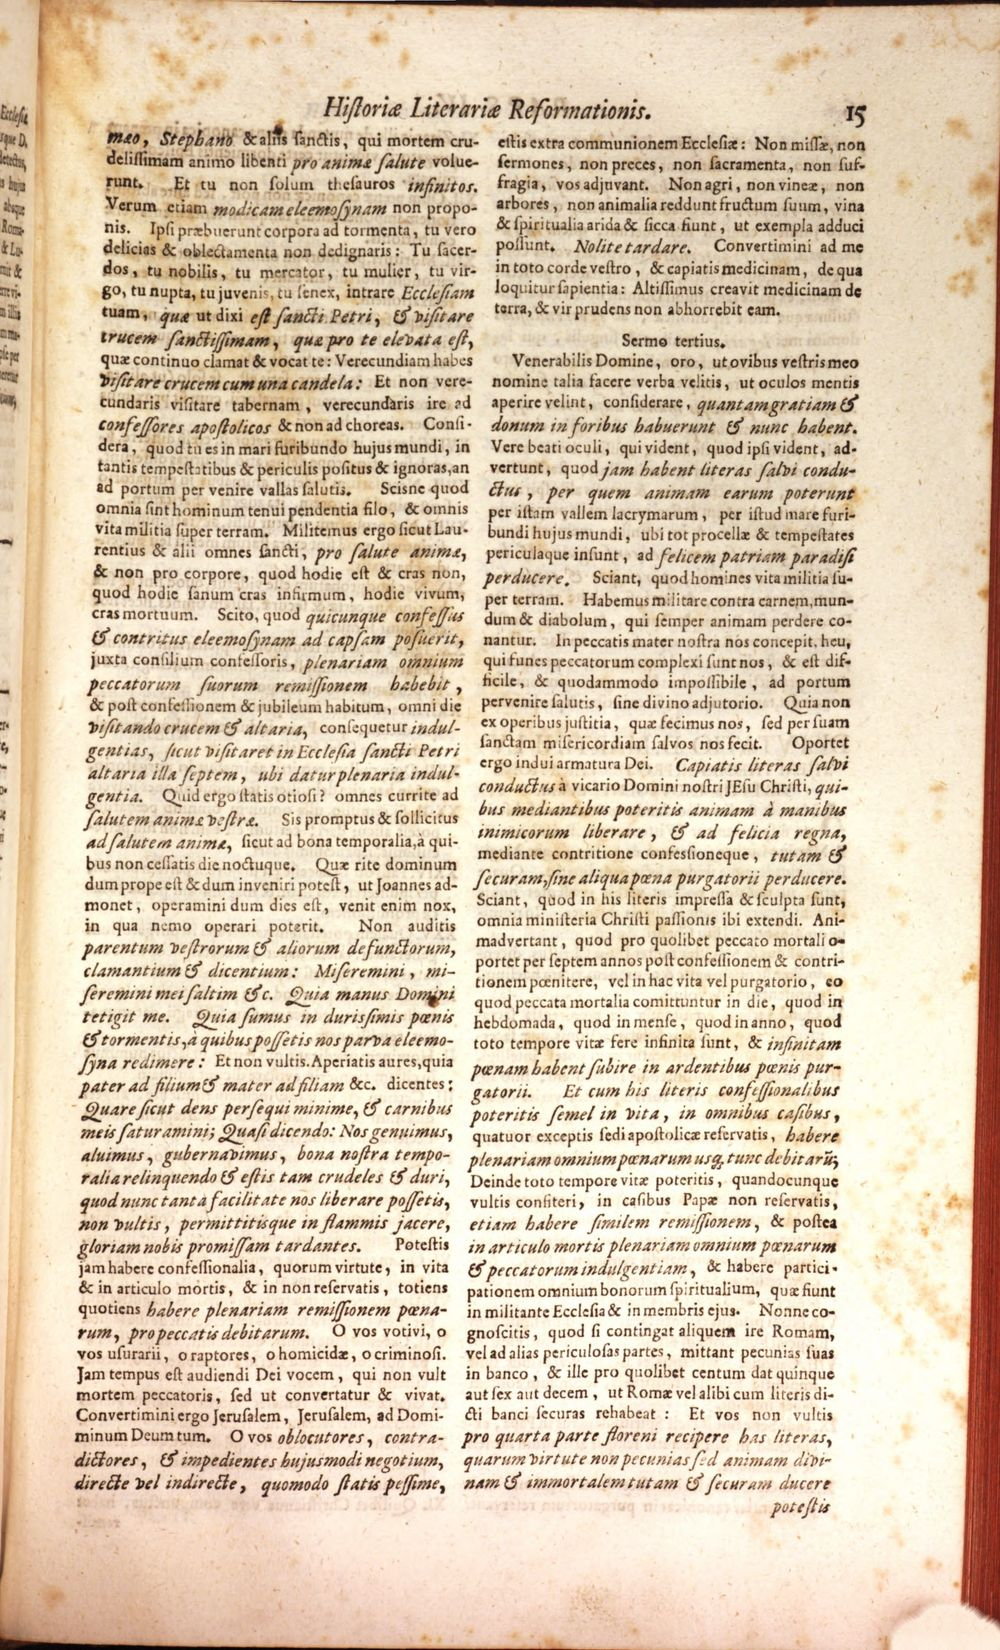 Historiæ Literariæ Reformationis. 15
mæo, Stephano & aliis sanctis, qui mortem cru-
delissimam animo libenti pro animæ salute volue-
runt. Et tu non solum thesauros infinitos.
Verum etiam modicam eleemosynam non propo-
nis. Ipsi præbuerunt corpora ad tormenta, tu vero
delicias & oblectamenta non dedignaris: Tu sacer-
dos, tu nobilis, tu mercator, tu mulier, tu vir-
go, tu nupta, tu juvenis, tu senex, intrare Ecclesiam
tuam, quæ ut dixi est sancti Petri, & visitare
crucem sanctissimam, quæ pro te elevata est,
quæ continuo clamat & vocat te: Verecundiam habes
visitare crucem cum una candela: Et non vere-
cundaris visitare tabernam, verecundaris ire ad
confessores apostolicos & non ad choreas. Consi-
dera, quod tu es in mari furibundo hujus mundi, in
tantis tempestatibus & periculis positus & ignoras, an
ad portum per venire vallas salutis. Scisne quod
omnia sint hominum tenui pendentia filo, & omnis
vita militia super terram. Militemus ergo sicut Lau-
rentius & alii omnes sancti, pro salute animæ,
& non pro corpore, quod hodie est & cras non,
quod hodie sanum cras infirmum, hodie vivum,
cras mortuum. Scito, quod quicunque confessus
& contritus eleemosynam ad capsam posuerit,
juxta consilium confessoris, plenariam omnium
peccatorum suorum remissionem habebit,
& post confessionem & jubileum habitum, omni die
visitando crucem & altaria, consequetur indul-
gentias, sicut visitaret in Ecclesia sancti Petri
altaria illa septem, ubi datur plenaria indul-
gentia. Quid ergo statis otiosi? omnes currite ad
salutem animæ vestræ. Sis promptus & sollicitus
ad salutem animæ, sicut ad bona temporalia, à qui-
bus non cessatis die noctuque. Quæ rite dominum
dum prope est & dum inveniri potest, ut Joannes ad-
monet, operamini dum dies est, venit enim nox,
in qua nemo operari poterit. Non auditis
parentum vestrorum & aliorum defunctorum,
clamantium & dicentium: Miseremini, mi-
seremini mei saltim &c. Quia manus Domini
tetigit me. Quia sumus in durissimis pœnis
& tormentis, à quibus possetis nos parva eleemo-
syna redimere: Et non vultis. Aperiatis aures, quia
pater ad filium & mater ad filiam &c. dicentes:
Quare sicut dens persequi minime, & carnibus
meis saturamini; Quasi dicendo: Nos genuimus,
aluimus, gubernavimus, bona nostra tempo-
ralia relinquendo & estis tam crudeles & duri,
quod nunc tanta facilitate nos liberare possetis,
non vultis, permittitisque in flammis jacere,
gloriam nobis promissam tardantes. Potestis
jam habere confessionalia, quorum virtute, in vita
& in articulo mortis, & in non reservatis, totiens
quotiens habere plenariam remissionem pœna-
rum, pro peccatis debitarum. O vos votivi, o
vos usurarii, o raptores, o homicidæ, o criminosi.
Jam tempus est audiendi Dei vocem, qui non vult
mortem peccatoris, sed ut convertatur & vivat.
Convertimini ergo Jerusalem, Jerusalem, ad Domi-
minum Deum tum. O vos oblocutores, contra-
dictores, & impedientes hujusmodi negotium,
directe vel indirecte, quomodo statis pessime,
estis extra communionem Ecclesiæ: Non missæ, non
sermones, non preces, non sacramenta, non suf-
fragia, vos adjuvant. Non agri, non vineæ, non
arbores, non animalia reddunt fructum suum, vina
& spiritualia arida & sicca fiunt, ut exempla adduci
possunt. Nolite tardare. Convertimini ad me
in toto corde vestro, & capiatis medicinam, de qua
loquitur sapientia: Altissimus creavit medicinam de
terra, & vir prudens non abhorrebit eam.
Sermo tertius.
Venerabilis Domine, oro, ut ovibus vestris meo
nomine talia facere verba velitis, ut oculos mentis
aperire velint, considerare, quantam gratiam &
donum in foribus habuerunt & nunc habent.
Vere beati oculi, qui vident, quod ipsi vident, ad-
vertunt, quod jam habent literas salvi condu-
ctus, per quem animam earum poterunt
per istam vallem lacrymarum, per istud mare furi-
bundi hujus mundi, ubi tot procellæ & tempestates
periculaque insunt, ad felicem patriam paradisi
perducere. Sciant, quod homines vita militia su-
per terram. Habemus militare contra carnem, mun-
dum & diabolum, qui semper animam perdere co-
nantur. In peccatis mater nostra nos concepit, heu,
qui funes peccatorum complexi sunt nos, & est dif-
ficile, & quodammodo impossibile, ad portum
pervenire salutis, sine divino adjutorio. Quia non
ex operibus justitia, quæ fecimus nos, sed per suam
sanctam misericordiam salvos nos fecit. Oportet
ergo indui armatura Dei. Capiatis literas salvi
conductus à vicario Domini nostri JEsu Christi, qui-
bus mediantibus poteritis animam à manibus
inimicorum liberare, & ad felicia regna,
mediante contritione confessioneque, tutam &
securam, sine aliqua pœna purgatorii perducere.
Sciant, quod in his literis impressa & sculpta sunt,
omnia ministeria Christi passionis ibi extendi. Ani-
madvertant, quod pro quolibet peccato mortali o-
portet per septem annos post confessionem & contri-
tionem pœnitere, vel in hac vita vel purgatorio, eo
quod peccata mortalia comittuntur in die, quod in
hebdomada, quod in mense, quod in anno, quod
toto tempore vitæ fere infinita sunt, & infinitam
pœnam habent subire in ardentibus pœnis pur-
gatorii. Et cum his literis confessionalibus
poteritis semel in vita, in omnibus casibus,
quatuor exceptis sedi apostolicæ reservatis, habere
plenariam omnium pœnarum usq; tunc debitarũ;
Deinde toto tempore vitæ poteritis, quandocunque
vultis confiteri, in casibus Papæ non reservatis,
etiam habere similem remissionem, & postea
in articulo mortis plenariam omnium pœnarum
& peccatorum indulgentiam, & habere partici-
pationem omnium bonorum spiritualium, quæ fiunt
in militante Ecclesia & in membris ejus. Nonne co-
gnoscitis, quod si contingat aliquem ire Romam,
vel ad alias periculosas partes, mittant pecunias suas
in banco, & ille pro quolibet centum dat quinque
aut sex aut decem, ut Romæ vel alibi cum literis di-
cti banci securas rehabeat: Et vos non vultis
pro quarta parte floreni recipere has literas,
quarum virtute non pecunias sed animam divi-
nam & immortalem tutam & securam ducere
potestis